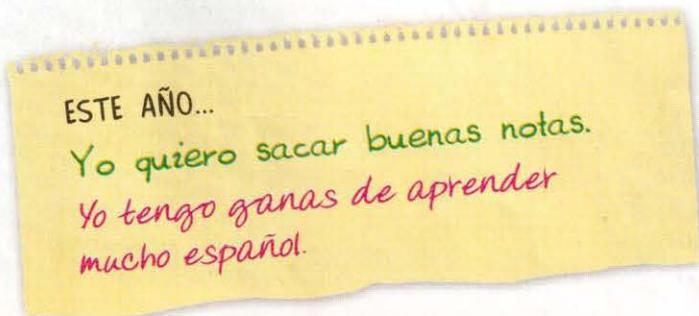 ESTE AÑO...
Yo quiero sacar buenas notas.
Yo tengo ganas de aprender
mucho español.